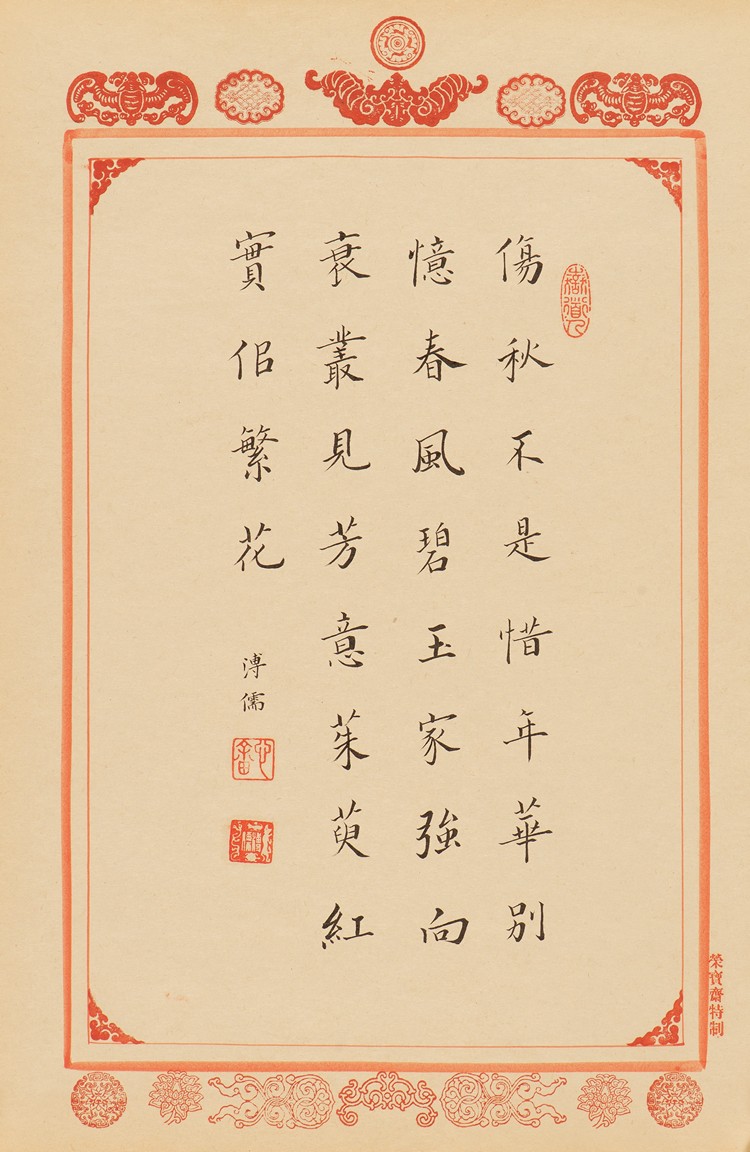 傷秋不是惜年華別
憶春風碧玉家強向
衰叢見芳意茱萸紅
實佀繁花
溥儒
心畬
榮寶齋特制